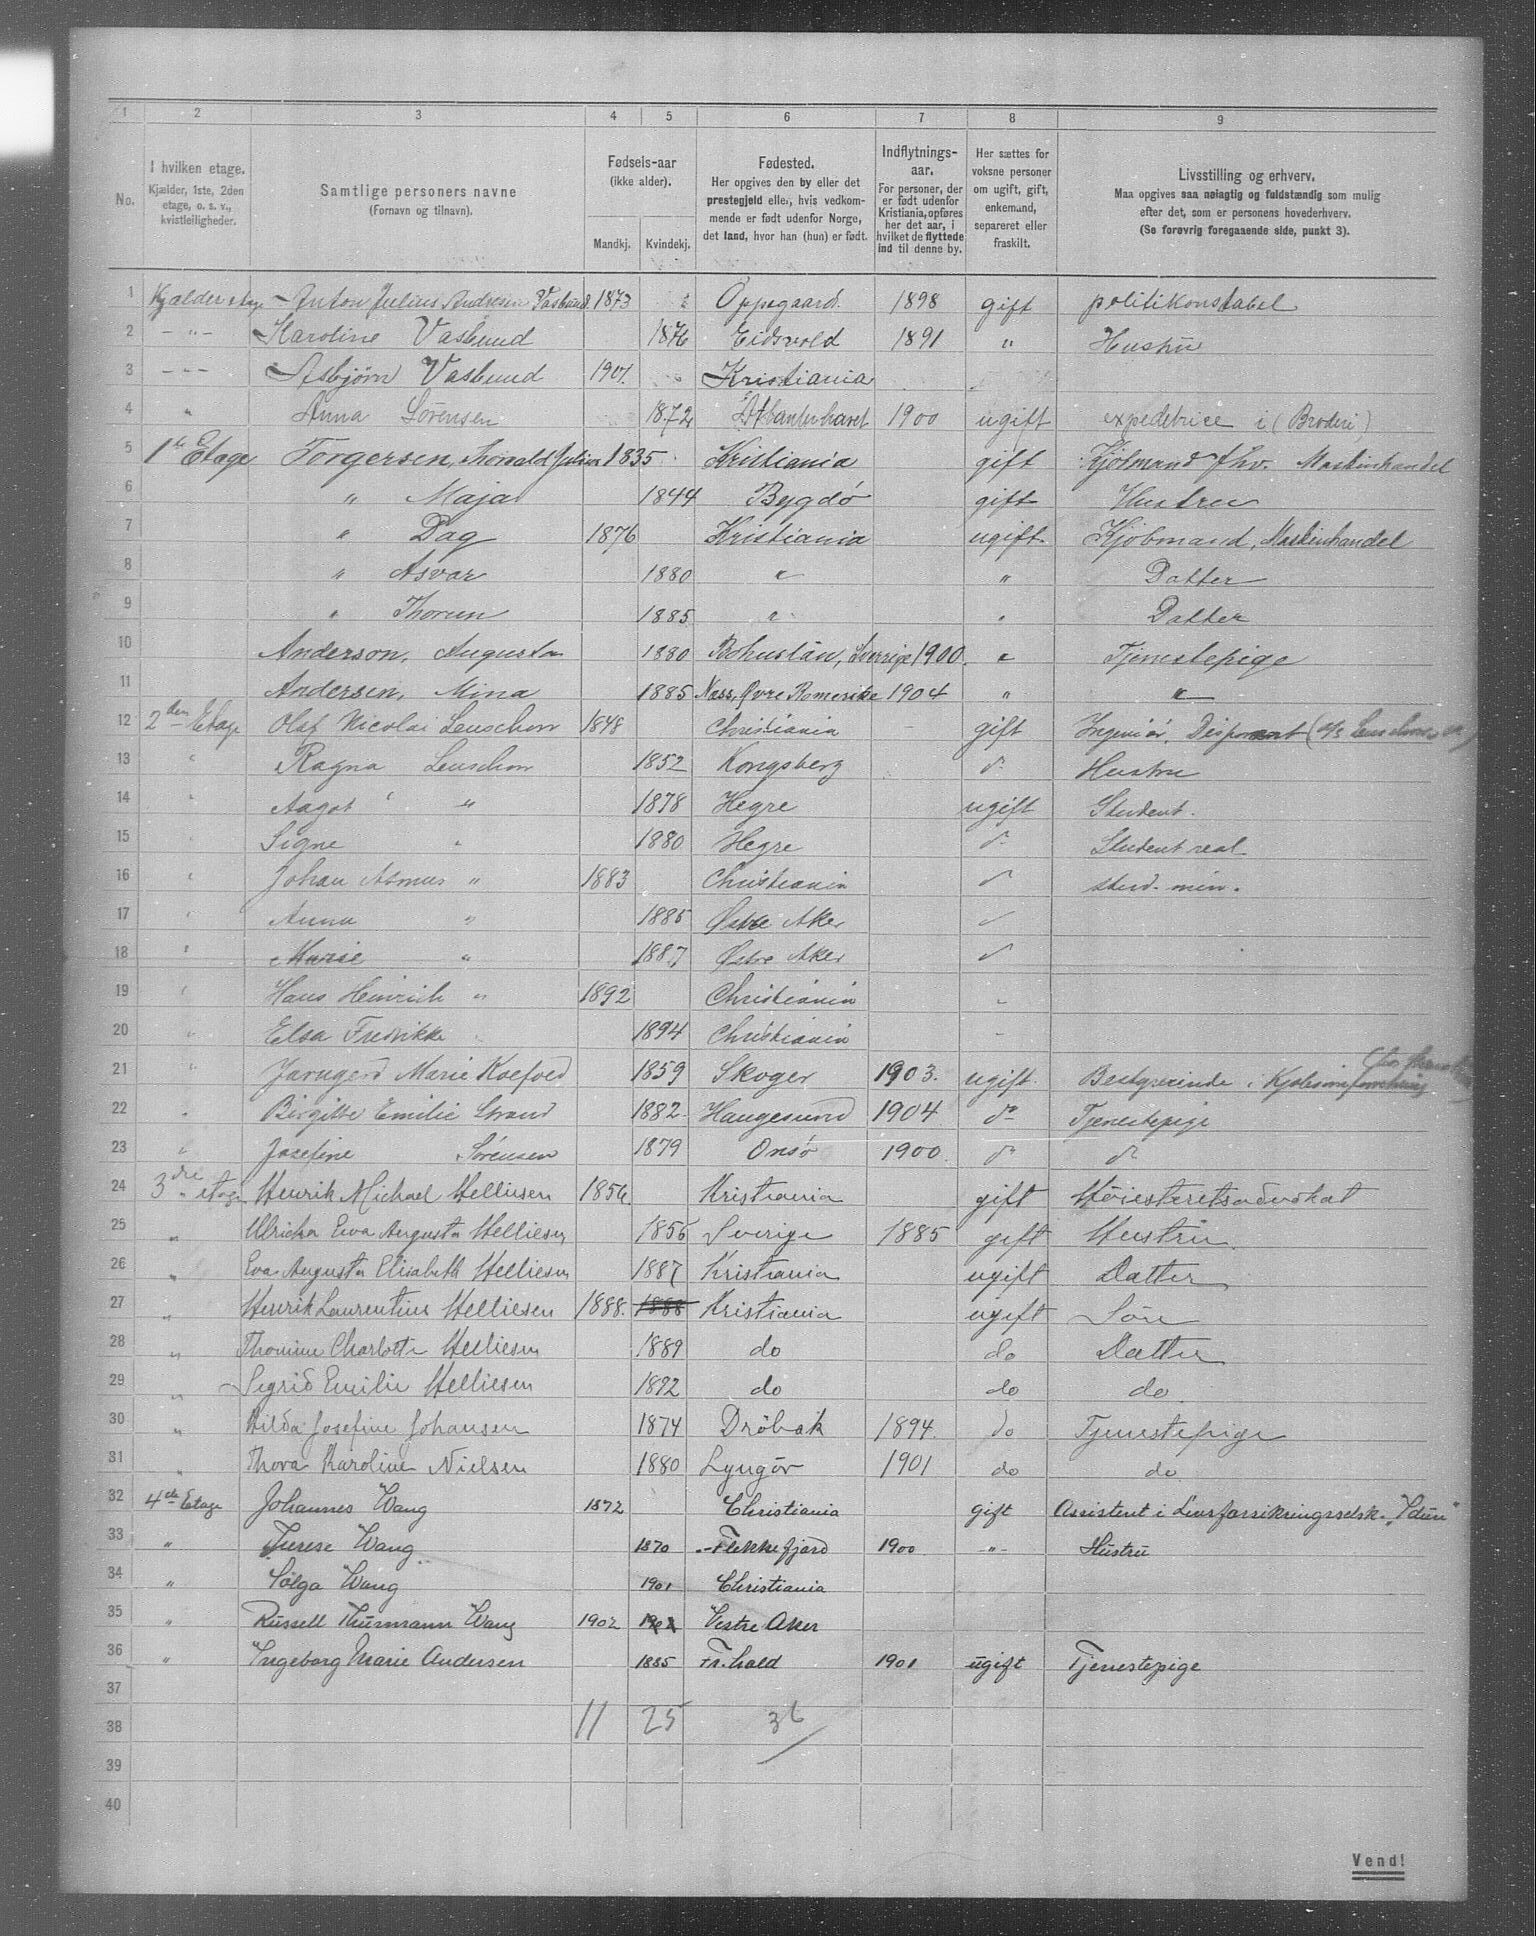 1 2 3 4 5 6 7 8 9
No.
I hvilken etage.
Kjælder, 1ste, 2den
etage, o. s. v.,
kvistleiligheder.
Samtlige personers navne
(Fornavn og tilnavn).
Fødsels-aar
(ikke alder).
Mandkj. Kvindekj.
Fødested.
Her opgives den by eller det
prestegjeld eller, hvis vedkom-
mende er født udenfor Norge,
det land, hvor han (hun) er født.
Indflytnings-
aar.
For personer, der
er født udenfor
Kristiania, opføres
her det aar, i
hvilket de flyttede
ind til denne by.
Her sættes for
voksne personer
om ugift, gift,
enkemand,
separeret eller
fraskilt.
Livsstilling og erhverv.
Maa opgives saa nøiagtig og fuldstændig som mulig
efter det, som er personens hovederhverv.
(Se forøvrig foregaaende side, punkt 3).
1 Kjælder etage Anton Julius Andresen Vasbund 1873 Oppegaard. 1898 gift politikonstabel
2 — " — Karoline Vasbund 1876 Eidsvold 1891 " Hustru
3 — - — Asbjørn Vasbund 1901. Kristiania
4 " Anna Sørensen 1872 Atlanterhavet 1900 ugift expeditrice i (Broderi)
5 1ste Etage Torgersen, Julius 1835 Kristiania gift Kjøbmand fhv. Maskinhandel
6 " Maja 1844 Bygdø gift Hustru
7 " Dag 1876 Kristiania ugift Kjøbmand, Maskinhandel
8 " Asvar 1880 " " Datter
9 " Thorun 1885 " " Datter
10 Anderson, Augusta 1880 Bohuslän, Sverrige 1900. " Tjenestepige
11 Andersen, Mina 1885 Næss, Øvre Romerike 1904 " "
12 2den Etage Olaf Nicolai Leuschow 1848 Christiania gift Ingeniør, Disponent
13 " Ragna Leuschow 1852 Kongsberg do Hustru
14 " Aagot " 1878 Hegre ugift Student.
15 " Signe " 1880 Hegre do Student real
16 " Johan Asmus " 1883 Christiania do stud. min.
17 " Anna " 1885 Østre Aker do
18 " Marie " 1887 Østre Aker do
19 " Hans Heinrich " 1892 Christiania -
20 " Elsa Fredrikke 1894 Christiania -
21 " Marie Koefoed 1859 Skoger 1903. ugift Bestyrerinde i
22 " Birgitte Emilie Strand 1882 Haugesund 1904 do Tjenestepige
23 " Josefine Sørensen 1879 Onsø 1900 do do
24 3dre etage Henrik Michael Helliesen 1856 Kristiania gift Høiesteretsadvokat
25 " Ulricka Eva Augusta Helliesen 1856 Sverige 1885 gift Hustru
26 " Eva Augusta Elisabeth Helliesen 1887 Kristiania ugift Datter
27 " Henrik Laurentius Helliesen 1888. 1888 Kristiania ugift Søn
28 " Thomine Charlotte Helliesen 1889 do do Datter
29 " Sigrid Emilie Helliesen 1892 do do do
30 " Hilda Josefine Johansen 1874 Drøbak 1894. do Tjenestepige
31 " Thova Karoline Nielsen 1880 Lyngør 1901 do do
32 4de Etage Johannes Wang 1872 Christiania gift Assistent i Livsforsikringsselsk. "Idun"
33 " Therese Wang 1870 Flekkefjord 1900 " Hustru
34 " Sølga Wang 1901 Christiania
35 " Russell Thurmann Wang 1902 1902 Vestre Aker
36 " Ingeborg Marie Andersen 1885 Fr.hald 1901 ugift Tjenestepige
37
38 11 25 36
39
40
Vend!